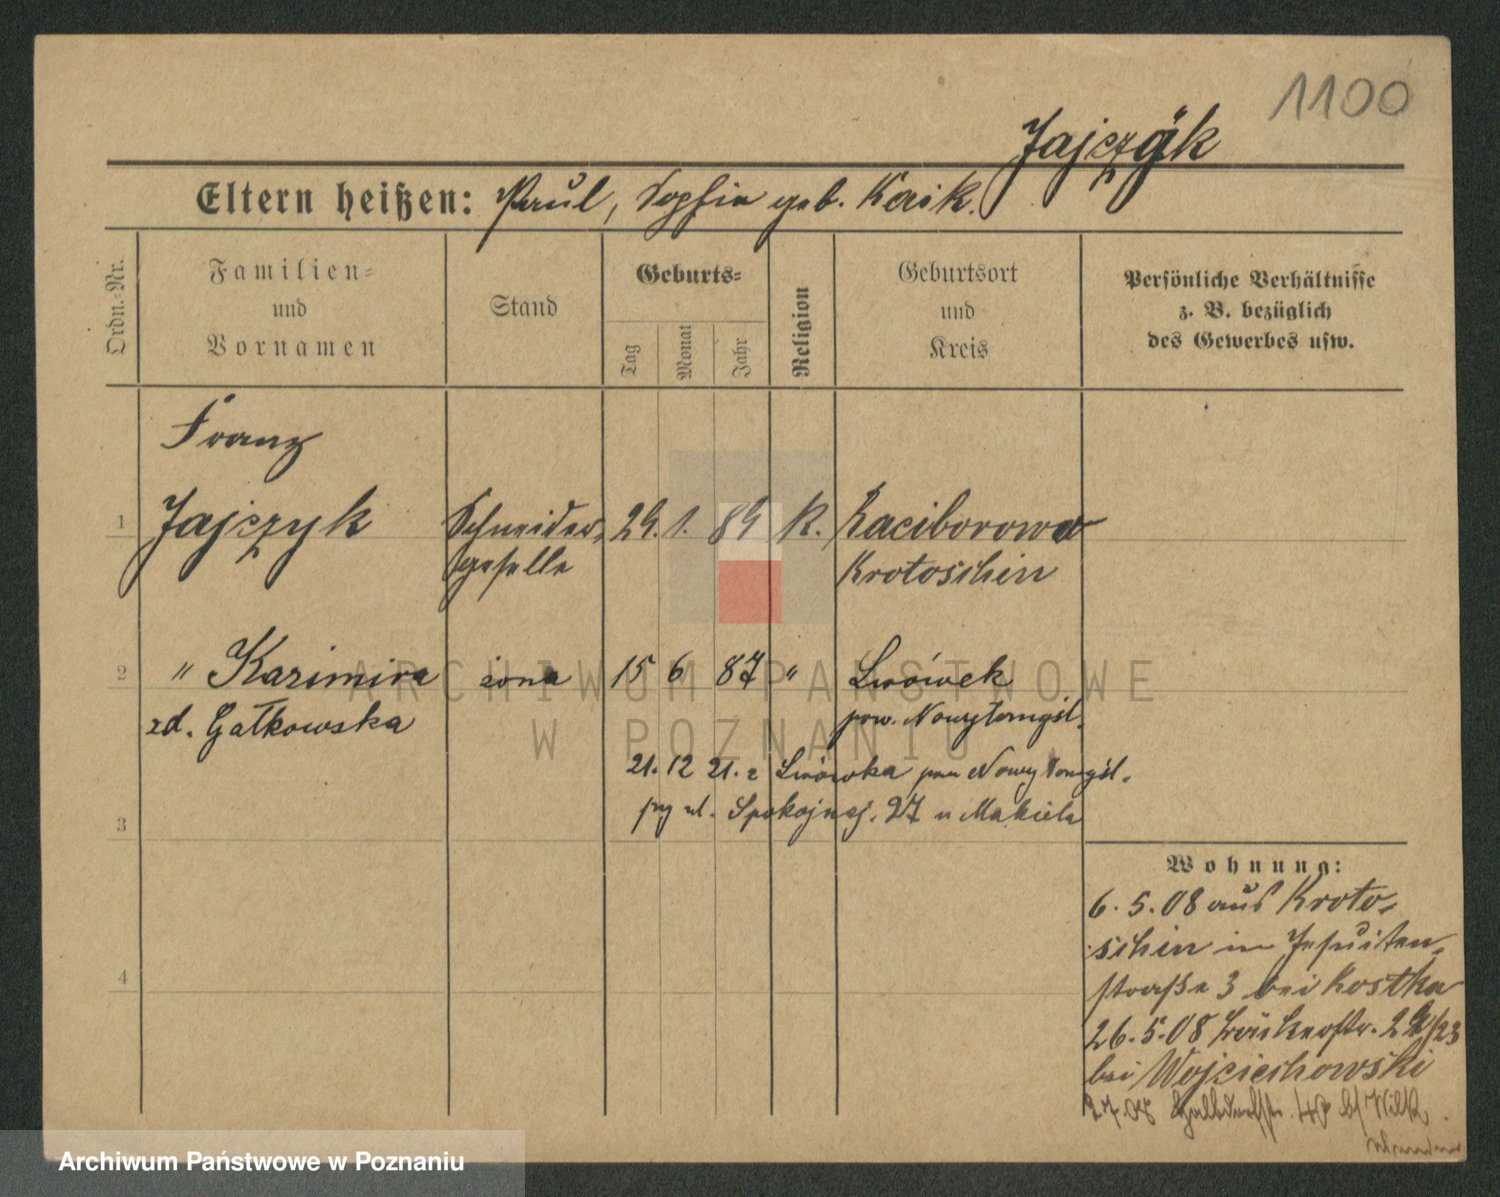 1100
Jajczyk
Eltern heißen: Paul, Sophia geb. Kaik.
Ordn.-Nr.
Familien-
und
Vornamen
Stand
Geburts-
Tag
Monat
Jahr
Religion
Geburtsort
und
Kreis
Persönliche Verhältnisse
z. B. bezüglich
des Gewerbes usw.
Franz
1 Jajczyk Schneider- 29. 1. 89 K. Raciborowo
geselle Krotoschin
2 " Kazimira żona 15 6 87 " Lwówek
zd. Gałkowska pow. Nowytomyśl.
21. 12 21. z Lwówka pow Nowy Tomyśl.
przy ul. Spokojnej. 27 u Makiela
3
4
Wohnung:
6. 5. 08 aus Kroto-
schin in Jesuiten-
straße 3 bei Kostka
26. 5. 08
bei Wojciechowski
Wilk
ARCHIWUM PAŃSTWOWE
W POZNANIU
Archiwum Państwowe w Poznaniu